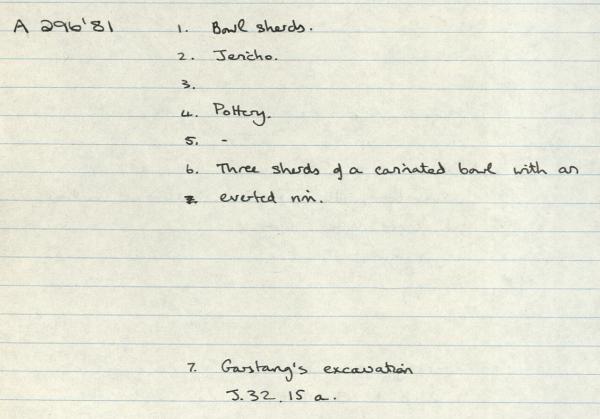 A 296'81 1. Bowl sherds.
2. Jericho.
3.
4. Pottery.
5. -
6. Three sherds of a carinated bowl with an
everted rim.
7. Garstang's excavation
J.32.15 a.